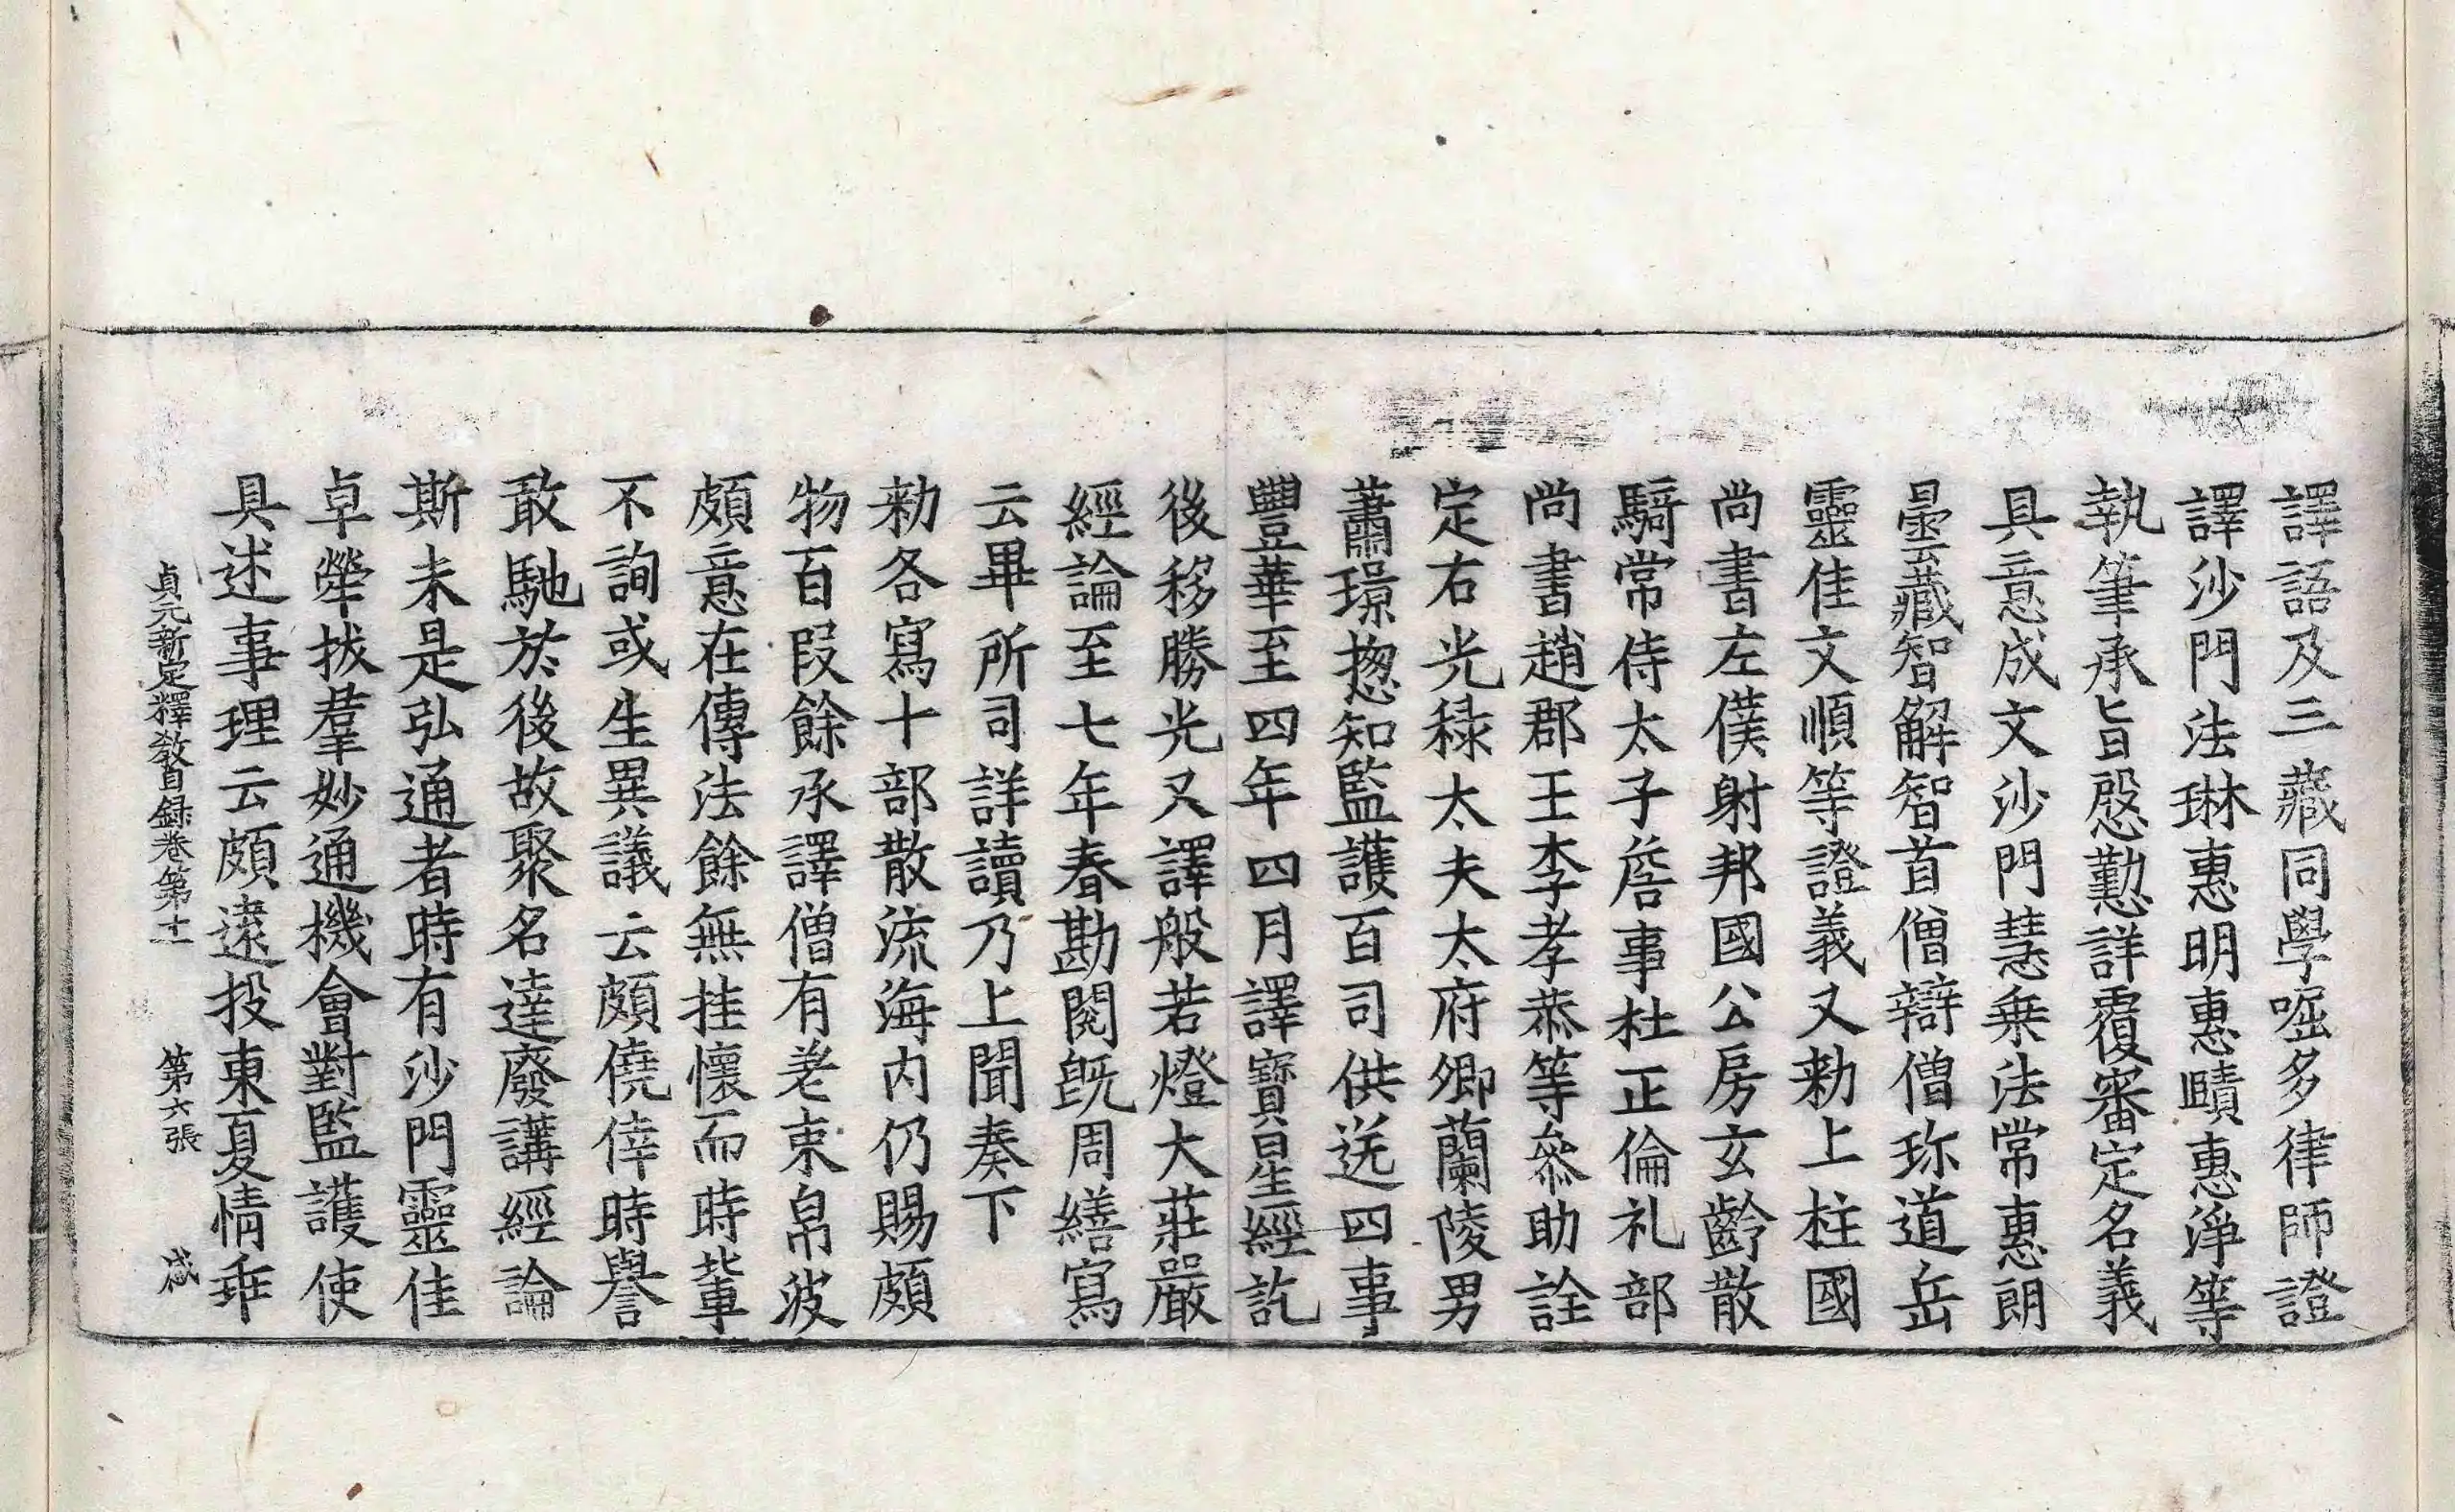 譯語及三藏同學崛多律師證
譯沙門法琳惠明惠賾惠淨等
執筆承旨慇懃詳覆審定名義
具意成文沙門慧乗法常惠朗
曇藏智解智首僧辯僧珎道岳
靈佳文順等證義又勅上柱國
尚書左僕射邦國公房玄齡散
騎常侍太子詹事杜正倫礼部
尚書趙郡王李孝恭等叅助詮
定右光禄太夫太府卿蘭陵男
蕭璟揔知監護百司供送四事
豐華至四年四月譯寶星經訖
後移勝光又譯般若燈大莊嚴
經論至七年春勘閱旣周繕寫
云畢所司詳讀乃上聞奏下
勅各寫十部散流海内仍賜頗
物百段餘承譯僧有差束帛波
頗意在傳法餘無挂懷而時輩
不詢或生異議云頗僥倖時譽
敢馳於後故聚名達廢講經論
斯未是弘通者時有沙門靈佳
卓犖拔羣妙通機會對監護使
具述事理云頗遠投東夏情乖
貞元新定釋教目録卷第十一 第六張